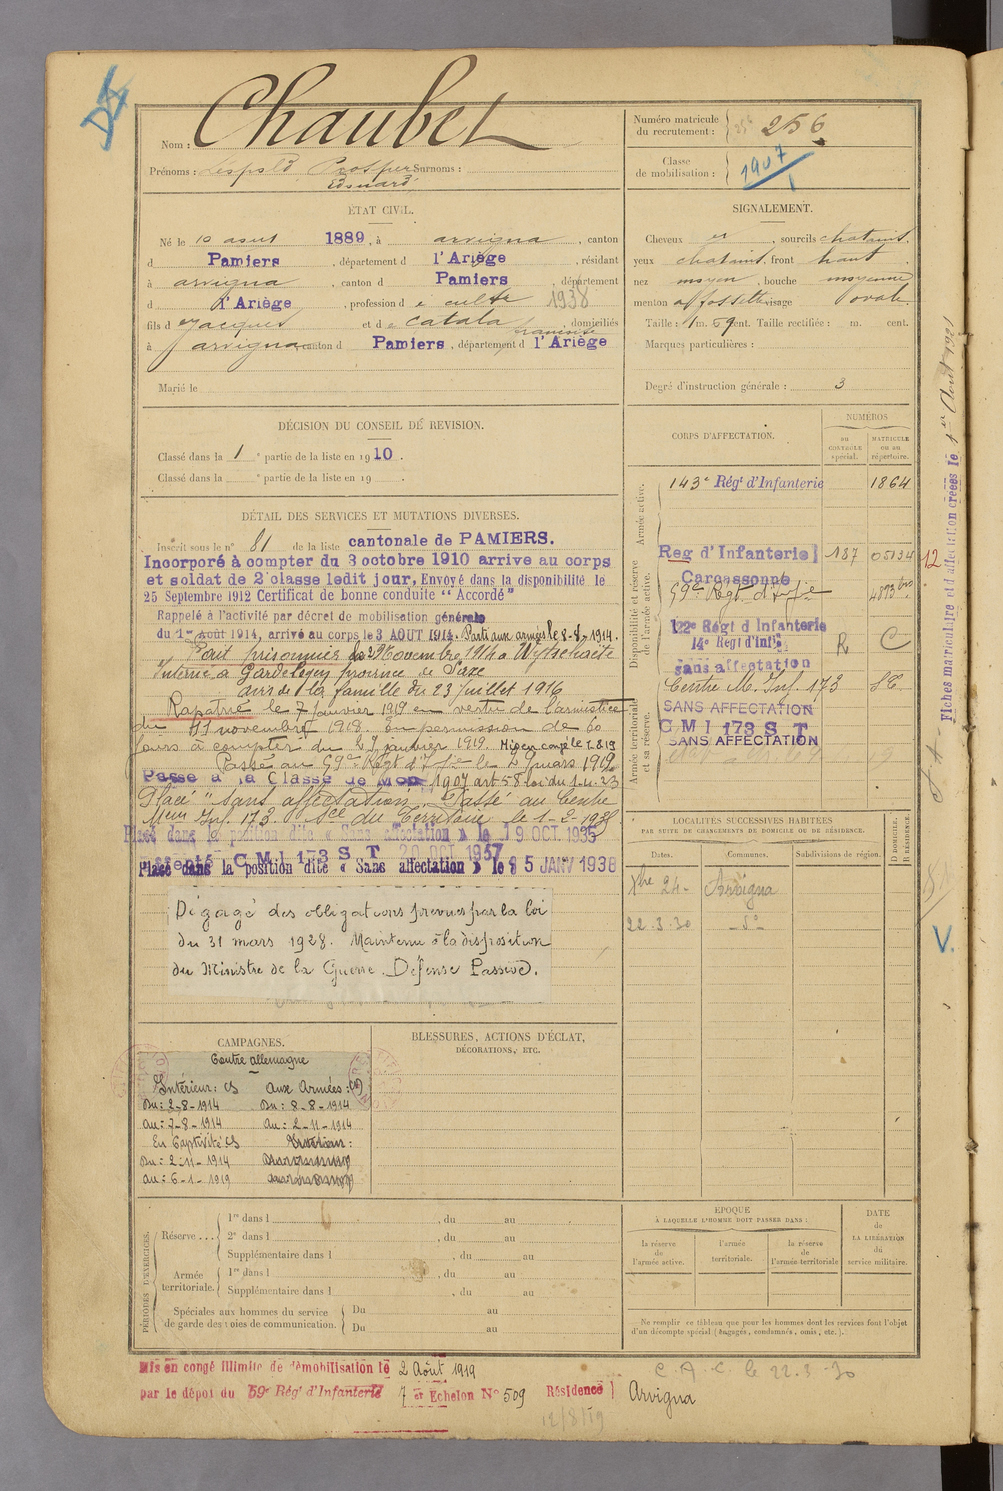 Nom : Chaubet
Prénoms : Léopold Prosper Surnoms :
Edouard
Numéro matricule
du recrutement : 256
Classe
de mobilisation : 1907
ÉTAT CIVIL.
Né le 10 aout 1889, à arvigna, canton
d Pamiers, département d l'Ariège, résidant
à arvigna, canton d Pamiers, département
d l'Ariège, profession d culte 1938
fils d Jacques et de Catala, domiciliés
francoise
à arvigna canton d Pamiers, département d l'Ariège
Marié le
SIGNALEMENT.
Cheveux et, sourcils chatains.
yeux chatains. front haut
nez moyen, bouche moyenne
menton à fossette visage ovale.
Taille : 1 m. 59 cent. Taille rectifiée : m. cent.
Marques particulières :
Degré d'instruction générale : 3
DÉCISION DU CONSEIL DE REVISION.
Classé dans la 1e partie de la liste en 1910.
Classé dans la e partie de la liste en 19 .
DÉTAIL DES SERVICES ET MUTATIONS DIVERSES.
Inscrit sous le n° 81 de la liste cantonale de PAMIERS.
Incorporé à compter du 3 octobre 1910 arrive au corps
et soldat de 2e classe ledit jour, Envoyé dans la disponibilité le
25 Septembre 1912 Certificat de bonne conduite "Accordé"
Rappelé à l'activité par décret de mobilisation générale
du 1er août 1914, arrivé au corps le 3 AOUT 1914. Parti aux armées le 8-8-1914.
Porit prisonnier le 2 Novembre 1914 à Wytschaete
Interné à Gardelegen province de Saxe
avis de la famille du 23 Juillet 1916
Rapatrié le 7 janvier 1919 en vertu de l'armistice
du 11 novembre 1918. En permission de 60
jours à compter du 27 janvier 1919. Mis en congé le 1.8.19
Passé au 59e Régt d'Ifie le 29 mars 1919
Passé à la Classe de Mob 1907 art 58 loi du 1.4.23
Placé "sans affectation". Passé au Centre
Mum Inf. 173. Sce du Territoire le 1-2-1928
Placé dans la position dite « Sans affectation » le 19 OCT. 1935
CMI 173 S T 20 OCT. 1937
Placé dans la position dite « Sans affectation » le 5 JANV 1938
Dégagé des obligations prévues par la loi
du 31 mars 1928. Maintenu à la disposition
du Ministre de la Guerre. Défense Passive.
CORPS D'AFFECTATION.
NUMÉROS
au
CONTROLE
spécial.
MATRICULE
ou au
répertoire.
Armée active.
143e Régt d'Infanterie 1864
Disponibilité et réserve
de l'armée active.
Reg d'Infanterie 187 05134 12
Carcassonne
59e Regt. d'Ifie 4873 bis
122e Régt d'Infanterie
14e Régt d'Infie R C
sans affectation
Armée territoriale
et sa réserve.
Centre M. Inf. 173 SC.
SANS AFFECTATION
C M I 173 S T
SANS AFFECTATION
LOCALITÉS SUCCESSIVES HABITÉES
PAR SUITE DE CHANGEMENTS DE DOMICILE OU DE RÉSIDENCE.
D DOMICILE.
R RÉSIDENCE.
Dates. Communes. Subdivisions de région.
Xbre 24 - Arvigna
22.3.30 - do -
V.
Fiches matriculaire et d'affectation créées le 1er Août 1921
CAMPAGNES.
Contre allemagne
Intérieur : CS Aux Armées : (CD)
Du : 2-8-1914 Du : 8-8-1914
au : 7-8-1914 au : 2-11-1914
En Captivité CS Intérieur :
Du : 2-11-1914
au : 6-1-1919
BLESSURES, ACTIONS D'ÉCLAT,
DÉCORATIONS, ETC.
PÉRIODES D'EXERCICES.
Réserve ...
1re dans l , du au
2e dans l , du au
Supplémentaire dans l , du au
Armée
territoriale.
1re dans l , du au
Supplémentaire dans l , du au
Spéciales aux hommes du service
de garde des voies de communication.
Du au
Du au
EPOQUE
À LAQUELLE L'HOMME DOIT PASSER DANS :
la réserve
de
l'armée active.
l'armée
territoriale.
la réserve
de
l'armée territoriale
DATE
de
LA LIBÉRATION
du
service militaire.
Ne remplir ce tableau que pour les hommes dont les services font l'objet
d'un décompte spécial (engagés, condamnés, omis, etc.).
Mis en congé illimité de démobilisation le 2 Août 1919
par le dépôt du 59e Rég' d'Infanterie 7 er Echelon N° 509 Résidence Arvigna
C.A.C. le 22.3.30
12/8/19